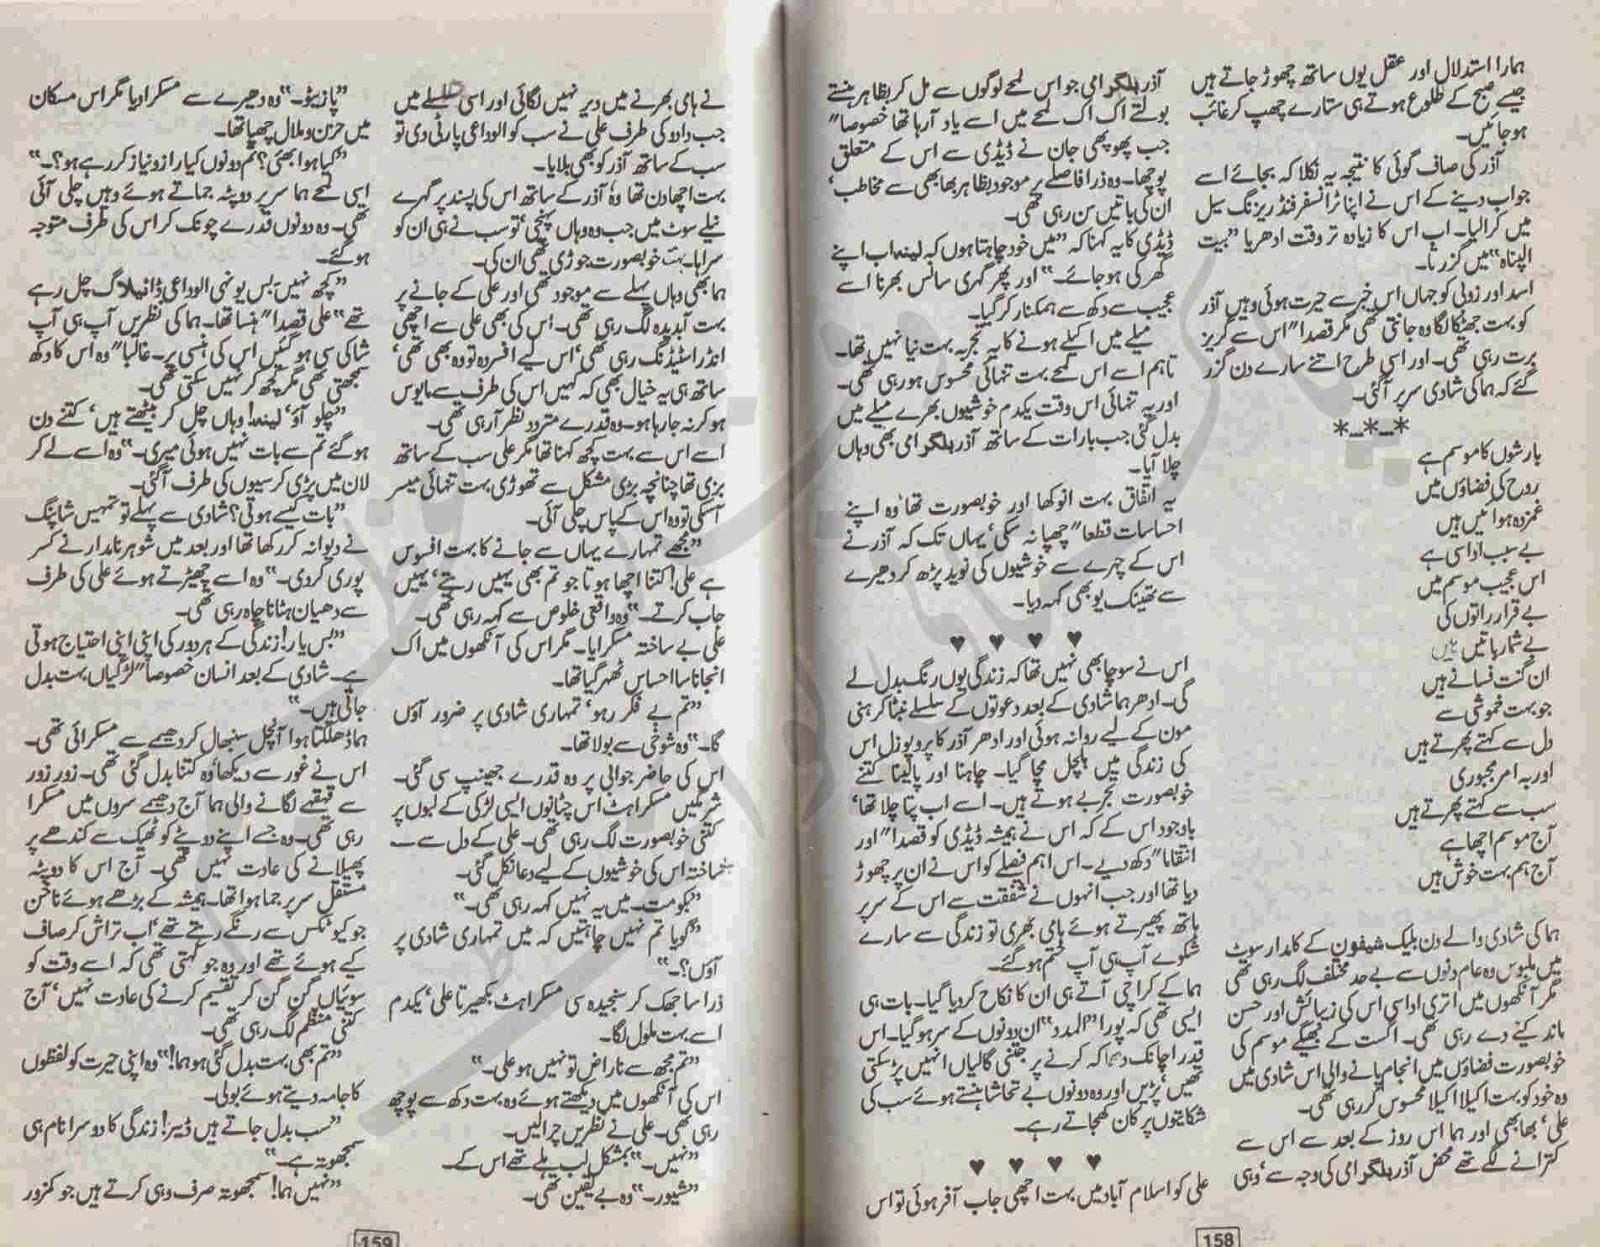 ہمارا استدلال اور عقل یوں ساتھ چھوڑ جاتے ہیں
جیسے صبح کے طلوع ہوتے ہی ستارے چھپ کر غائب
ہو جائیں۔
آذر کی صاف گوئی کا نتیجہ یہ نکلا کہ بجائے اسے
جواب دینے کے اس نے اپنا ٹرانسفر فنڈ ریزنگ سیل
میں کرا لیا۔ اب اس کا زیادہ تر وقت ادھر یا ”بیت
الپناہ“ میں گزرتا۔
اسد اور زوئی کو جہاں اس خبر سے حیرت ہوئی وہیں آذر
کو بہت جھٹکا لگا وہ جانتی تھی مگر قصدا" اس سے گریز
برت رہی تھی۔ اور اسی طرح اتنے سارے دن گزر
گئے کہ ہما کی شادی سر پر آگئی۔
*-*-*
بارشوں کا موسم ہے
روح کی فضاؤں میں
غمزدہ ہوائیں ہیں
بے سبب اداسی ہے
اس عجیب موسم میں
بے قرار راتوں کی
بے شمار باتیں ہیں
ان گنت فسانے ہیں
جو بہت خموشی سے
دل سے کہتے پھرتے ہیں
اور بہ امر مجبوری
سب سے کہتے پھرتے ہیں
آج موسم اچھا ہے
آج ہم بہت خوش ہیں
ہما کی شادی والے دن بلیک شیفون کے کامدار سوٹ
میں ملبوس وہ عام دنوں سے بے حد مختلف لگ رہی تھی
مگر آنکھوں میں اتری اداسی اس کی زیبائش اور حسن
ماند کیے دے رہی تھی۔ اگست کے بھیگے موسم کی
خوبصورت فضاؤں میں انجام پانے والی اس شادی میں
وہ خود کو بہت اکیلا اکیلا محسوس کر رہی تھی۔
علی‘ بھابھی اور ہما اس روز کے بعد سے اس سے
کترانے لگے تھے محض آذر بلگرامی کی وجہ سے‘ وہی
آذر بلگرامی جو اس لمحے لوگوں سے مل کر بظاہر ہنستے
بولتے اک اک لمحے میں اسے یاد آرہا تھا خصوصا"
جب پھوپھی جان نے ڈیڈی سے اس کے متعلق
پوچھا۔ وہ ذرا فاصلے پر موجود بظاہر بھابھی سے مخاطب‘
ان کی باتیں سن رہی تھی۔
ڈیڈی کا یہ کہنا کہ ”میں خود چاہتا ہوں کہ لینہ اب اپنے
گھر کی ہو جائے۔“ اور پھر گہری سانس بھرنا اسے
عجیب سے دکھ سے ہمکنار کر گیا۔
میلے میں اکیلے ہونے کا یہ تجربہ بہت نیا نہیں تھا۔
تاہم اسے اس لمحے بہت تنہائی محسوس ہو رہی تھی۔
اور یہ تنہائی اس وقت یکدم خوشیوں بھرے میلے میں
بدل گئی جب بارات کے ساتھ آذر بلگرامی بھی وہاں
چلا آیا۔
یہ اتفاق بہت انوکھا اور خوبصورت تھا وہ اپنے
احساسات قطعا" چھپا نہ سکی‘ یہاں تک کہ آذر نے
اس کے چہرے سے خوشیوں کی نوید پڑھ کر دھیرے
سے تھینک یو بھی کہہ دیا۔
♥ ♥ ♥ ♥
اس نے سوچا بھی نہیں تھا کہ زندگی یوں رنگ بدل لے
گی۔ ادھر ہما شادی کے بعد دعوتوں کے سلسلے نبٹا کر ہنی
مون کے لیے روانہ ہوئی اور ادھر آذر کا پروپوزل اس
کی زندگی میں ہلچل مچا گیا۔ چاہنا اور پالینا کتنے
خوبصورت تجربے ہوتے ہیں۔ اسے اب پتا چلا تھا‘
باوجود اس کے کہ اس نے ہمیشہ ڈیڈی کو قصدا" اور
انتقاما" دکھ دیے۔ اس اہم فیصلے کو اس نے ان پر چھوڑ
دیا تھا اور جب انہوں نے شفقت سے اس کے سر پر
ہاتھ پھیرتے ہوئے ہامی بھری تو زندگی سے سارے
شکوے آپ ہی آپ ختم ہو گئے۔
ہما کے کراچی آتے ہی ان کا نکاح کر دیا گیا۔ بات ہی
ایسی تھی کہ پورا ”المدد“ ان دونوں کے سر ہو گیا۔ اس
قدر اچانک دھماکہ کرنے پر جتنی گالیاں انہیں پڑ سکتی
تھیں‘ پڑیں اور وہ دونوں بے تحاشا ہنستے ہوئے سب کی
شکایتوں پر کان کھجاتے رہے۔
♥ ♥ ♥ ♥
علی کو اسلام آباد میں بہت اچھی جاب آفر ہوئی تو اس
158
نے ہامی بھرنے میں دیر نہیں لگائی اور اسی سلسلے میں
جب دادو کی طرف علی نے سب کو الوداعی پارٹی دی تو
سب کے ساتھ آذر کو بھی بلایا۔
بہت اچھا دن تھا وہ‘ آذر کے ساتھ اس کی پسند پر گہرے
نیلے سوٹ میں جب وہ وہاں پہنچی‘ تو سب نے ہی ان کو
سراہا۔ بہت خوبصورت جوڑی تھی ان کی۔
ہما بھی وہاں پہلے سے موجود تھی اور علی کے جانے پر
بہت آبدیدہ لگ رہی تھی۔ اس کی بھی علی سے اچھی
انڈر اسٹینڈنگ رہی تھی‘ اس لیے افسردہ تو وہ بھی تھی‘
ساتھ ہی یہ خیال بھی کہ کہیں اس کی طرف سے مایوس
ہو کر نہ جا رہا ہو۔ وہ قدرے متردد نظر آرہی تھی۔
اسے اس سے بہت کچھ کہنا تھا مگر علی سب کے ساتھ
بزی تھا چنانچہ بڑی مشکل سے تھوڑی بہت تنہائی میسر
آسکی تو وہ اس کے پاس چلی آئی۔
”مجھے تمہارے یہاں سے جانے کا بہت افسوس
ہے علی! کتنا اچھا ہوتا جو تم بھی یہیں رہتے‘ یہیں
جاب کرتے۔“ وہ واقعی خلوص سے کہہ رہی تھی۔
علی بے ساختہ مسکرایا۔ مگر اس کی آنکھوں میں اک
انجانا سا احساس ٹھہر گیا تھا۔
”تم بے فکر رہو‘ تمہاری شادی پر ضرور آؤں
گا۔“ وہ شوخی سے بولا تھا۔
اس کی حاضر جوابی پر وہ قدرے جھینپ سی گئی۔
شرمگیں مسکراہٹ اس چٹانوں ایسی لڑکی کے لبوں پر
کتنی خوبصورت لگ رہی تھی۔ علی کے دل سے بے
ساختہ اس کی خوشیوں کے لیے دعا نکل گئی۔
”بکومت۔ میں یہ نہیں کہہ رہی تھی۔“
”گویا تم نہیں چاہتیں کہ میں تمہاری شادی پر
آؤں؟۔“
ذرا سا جھک کر سنجیدہ سی مسکراہٹ بکھیرتا علی‘ یکدم
اسے بہت ملول لگا۔
”تم مجھ سے ناراض تو نہیں ہو علی۔“
اس کی آنکھوں میں دیکھتے ہوئے وہ بہت دکھ سے پوچھ
رہی تھی۔ علی نے نظریں چرالیں۔
”نہیں۔“ بمشکل لب ہلے تھے اس کے۔
”شیور۔“ وہ بے یقین تھی۔
”پازیٹو۔“ وہ دھیرے سے مسکرا دیا مگر اس مسکان
میں حزن و ملال چھپا تھا۔
”کیا ہوا بھئی؟ تم دونوں کیا راز و نیاز کر رہے ہو؟۔“
ایسی لمحے ہما سر پر دوپٹہ جماتے ہوئے وہیں چلی آئی
تھی۔ وہ دونوں قدرے چونک کر اس کی طرف متوجہ
ہو گئے۔
”کچھ نہیں۔ بس یونہی الوداعی ڈائیلاگ چل رہے
تھے“ علی قصدا" ہنسا تھا۔ ہما کی نظریں آپ ہی آپ
شاکی سی ہو گئیں اس کی ہنسی پر۔ غالبا" وہ اس کا دکھ
سمجھتی تھی مگر کچھ کر نہیں سکتی تھی۔
”چلو آؤ‘ لینہ! وہاں چل کر بیٹھتے ہیں‘ کتنے دن
ہو گئے تم سے بات نہیں ہوئی میری۔“ وہ اسے لے کر
لان میں پڑی کرسیوں کی طرف آگئی۔
”بات کیسے ہوتی؟ شادی سے پہلے تو تمہیں شاپنگ
نے دیوانہ کر رکھا تھا اور بعد میں شوہر نامدار نے کسر
پوری کر دی۔“ وہ اسے چھیڑتے ہوئے علی کی طرف
سے دھیان ہٹانا چاہ رہی تھی۔
”بس یار! زندگی کے ہر دور کی اپنی اپنی احتیاج ہوتی
ہے۔ شادی کے بعد انسان خصوصا" لڑکیاں بہت بدل
جاتی ہیں۔“
ہما ڈھلکتا ہوا آنچل سنبھال کر دھیمے سے مسکرائی تھی۔
اس نے غور سے دیکھا‘ وہ کتنا بدل گئی تھی۔ زور زور
سے قہقہے لگانے والی ہما آج دھیمے سروں میں مسکرا
رہی تھی۔ وہ جسے اپنے دوپٹے کو ٹھیک سے کندھے پر
پھیلانے کی عادت نہیں تھی۔ آج اس کا دوپٹہ
مستقل سر پر جما ہوا تھا۔ ہمیشہ کے بڑھے ہوئے ناخن
جو کیوٹکس سے رنگے رہتے تھے‘ اب تراش کر صاف
کیے ہوئے تھے اور وہ جو کہتی تھی کہ اسے وقت کو
سوئیاں گن گن کر تقسیم کرنے کی عادت نہیں‘ آج
کتنی منظم لگ رہی تھی۔
”تم بھی بہت بدل گئی ہو ہما!“ وہ اپنی حیرت کو لفظوں
کا جامہ دیتے ہوئے بولی۔
”سب بدل جاتے ہیں ڈیئر! زندگی کا دوسرا نام ہی
سمجھوتہ ہے۔“
”نہیں ہما! سمجھوتہ صرف وہی کرتے ہیں جو کمزور
159